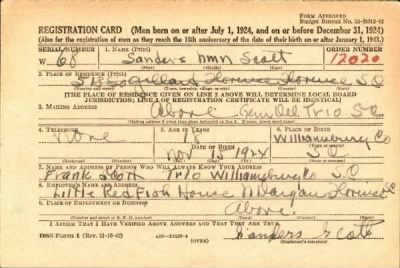 FORM APPROVED
Budget Bureau No. 33-R012-42
REGISTRATION CARD (Men born on or after July 1, 1924, and on or before December 31, 1924)
(Also for the registration of men as they reach the 18th anniversary of the date of their birth on or after January 1, 1943.)
SERIAL NUMBER
1. NAME (Print)
ORDER NUMBER
W 68
Sanders nmn Scott
12020
2. PLACE OF RESIDENCE (Print)
Florence Florence S.C.
[THE PLACE OF RESIDENCE GIVEN ON LINE 2 ABOVE WILL DETERMINE LOCAL BOARD
JURISDICTION; LINE 2 OF REGISTRATION CERTIFICATE WILL BE IDENTICAL]
3. MAILING ADDRESS
Above Gen Del Trio SC
4. TELEPHONE
5. AGE IN YEARS
6. PLACE OF BIRTH
None
18
Williamsburg Co
DATE OF BIRTH
S.C.
Nov 1924
7. NAME AND ADDRESS OF PERSON WHO WILL ALWAYS KNOW YOUR ADDRESS
Frank Scott Trio Williamsburg Co S.C
8. EMPLOYER'S NAME AND ADDRESS
Little Red Fish House N Dargan Florence
9. PLACE OF EMPLOYMENT OR BUSINESS
Above
I AFFIRM THAT I HAVE VERIFIED ABOVE ANSWERS AND THAT THEY ARE TRUE.
Sanders Scott
(OVER)
(Registrant's signature)